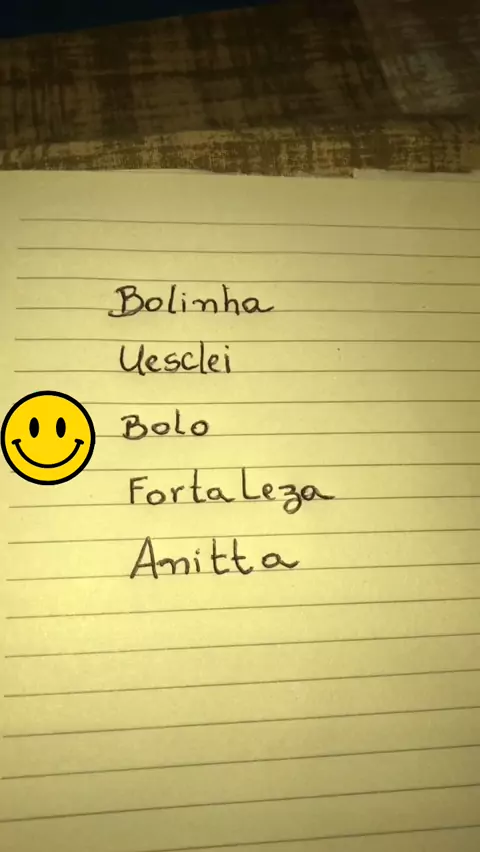 Bolinha
Uesclei
Bolo
Fortaleza
Anitta